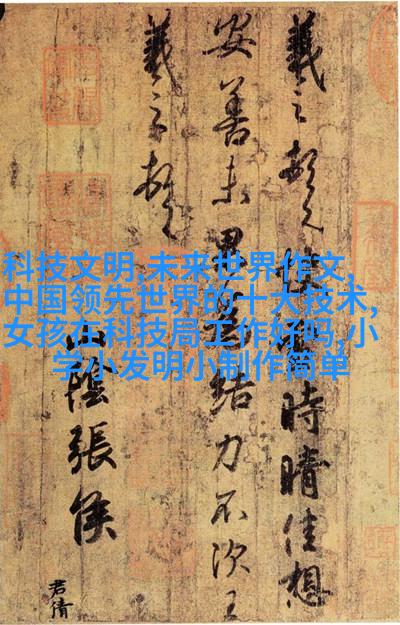 羲之頓首快雪時晴佳想
安善未果為結力不次王
羲之頓首
山陰張侯
君倩
科技文明,未来世界作文,
中国领先世界的十大技术,
女孩在科技局工作好吗,小
学小发明小制作简单